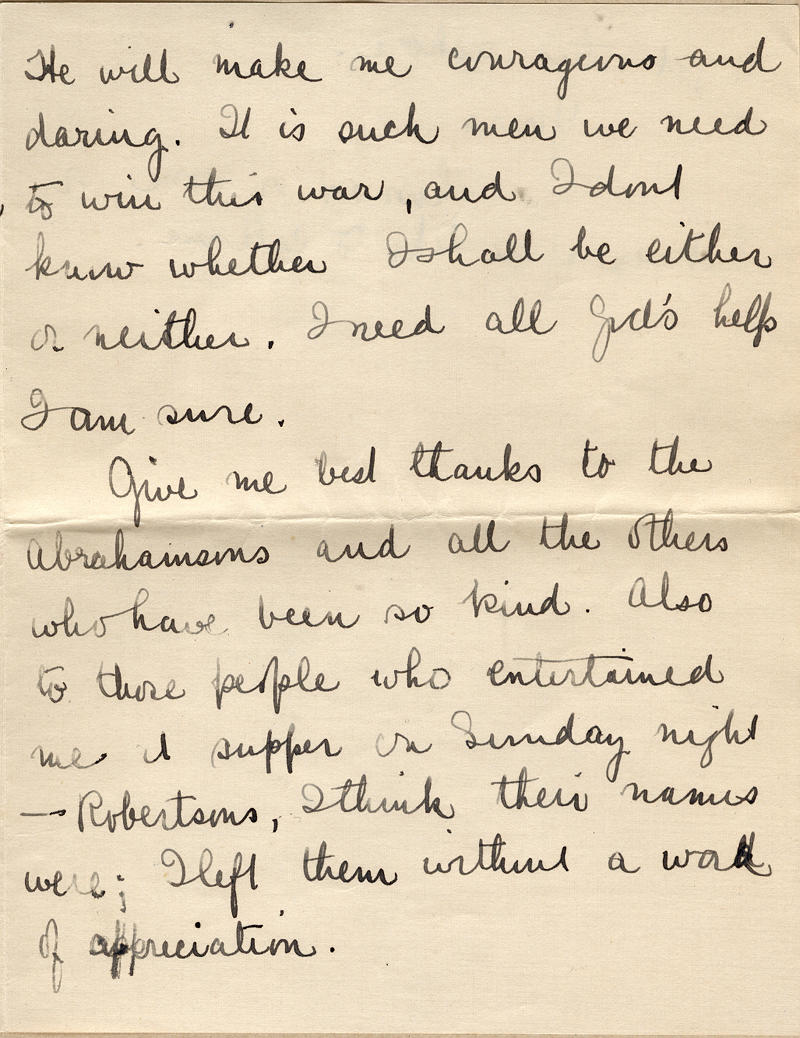 He will make me courageous and
daring. It is such men we need
to win this war, and I dont
know whether I shall be either
or neither. I need all God's help
I am sure.
Give me best thanks to the
Abrahamsons and all the others
who have been so kind. Also
to those people who entertained
me at supper on Sunday night
— Robertsons, I think their names
were; I left them without a word
of appreciation.